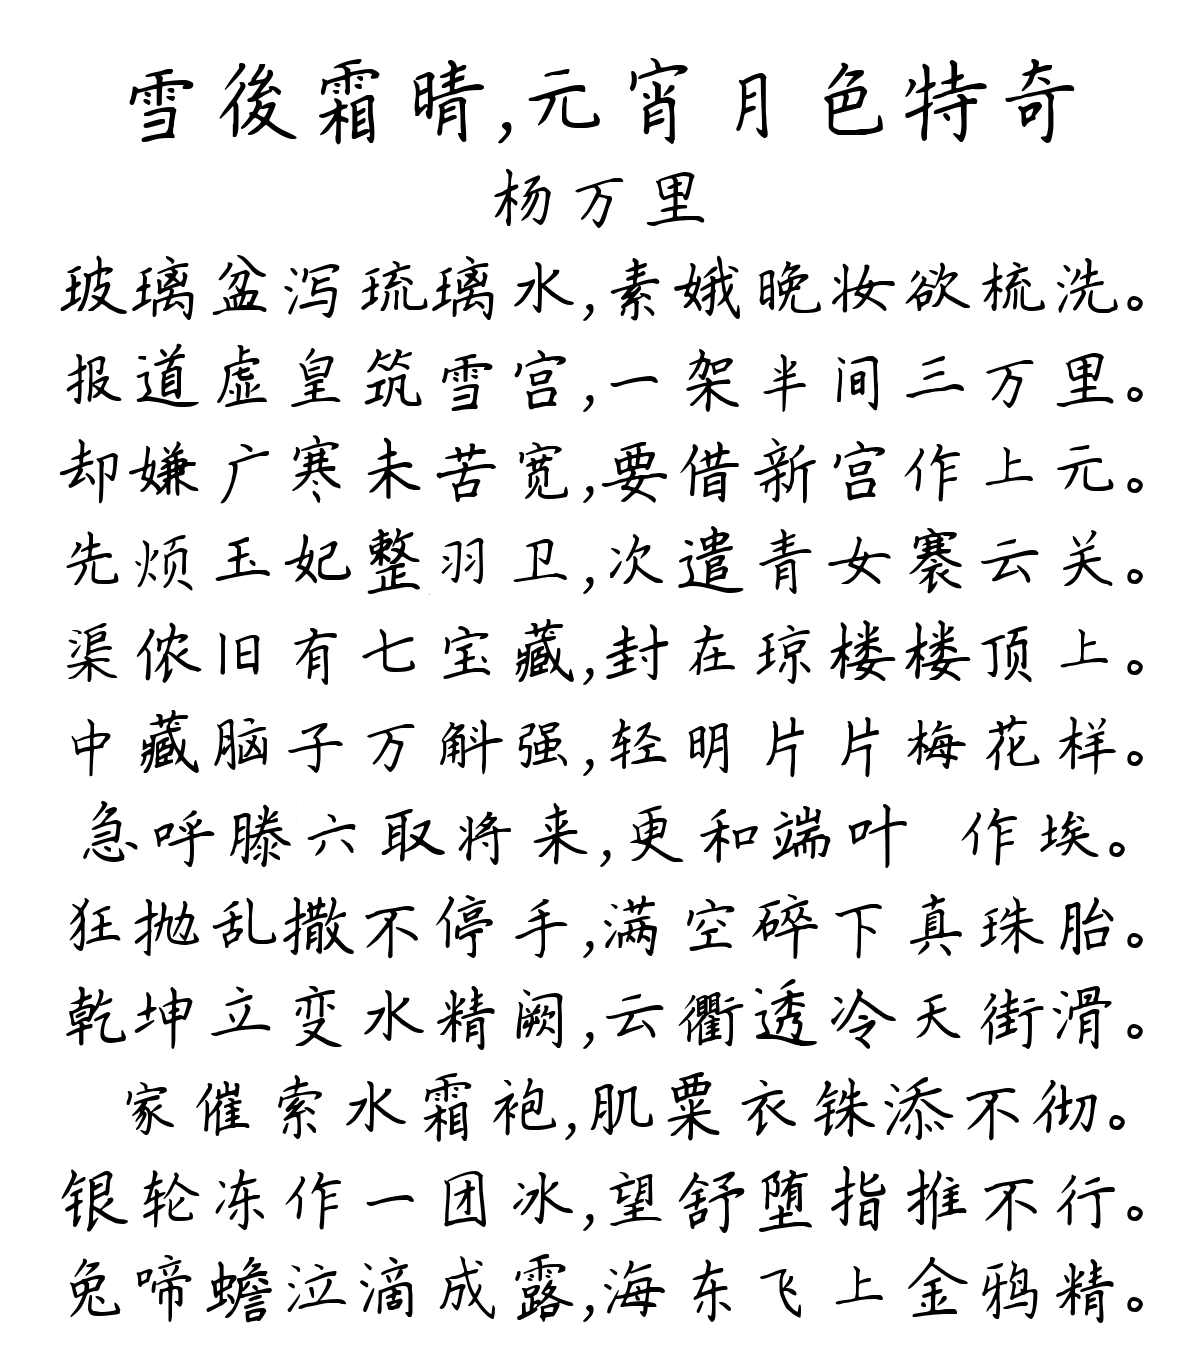 雪後霜晴,元宵月色特奇
杨万里
玻璃盆泻琉璃水,素娥晚妆欲梳洗。
报道虚皇筑雪宫,一架半间三万里。
却嫌广寒未苦宽,要借新宫作上元。
先烦玉妃整羽卫,次遣青女褰云关。
渠侬旧有七宝藏,封在琼楼楼顶上。
中藏脑子万斛强,轻明片片梅花样。
急呼滕六取将来,更和端叶 作埃。
狂抛乱撒不停手,满空碎下真珠胎。
乾坤立变水精阙,云衢透冷天街滑。
家催索水霜袍,肌粟衣铢添不彻。
银轮冻作一团冰,望舒堕指推不行。
兔啼蟾泣滴成露,海东飞上金鸦精。